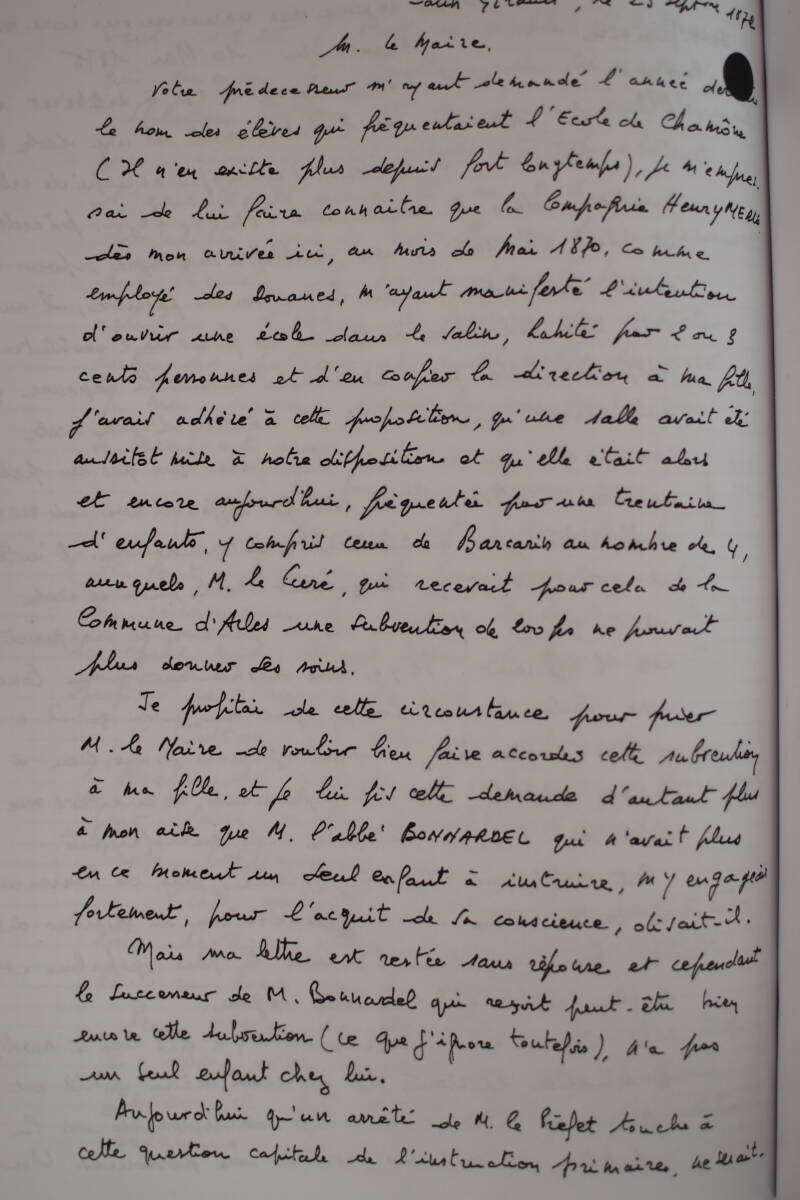 Salin Giraud, le 23 septbre 1872
M. le Maire.
Votre prédecesseur m'ayant demandé l'année
le nom des élèves qui fréquentaient l'Ecole de Chamône
(Il n'en existe plus depuis fort longtemps), je m'empres-
sai de lui faire connaitre que la Compagnie Henry MERLE
dès mon arrivée ici, au mois de Mai 1870, comme
employé des Douanes, m'ayant manifesté l'intention
d'ouvrir une école dans le salin, habité par 2 ou 3
cents personnes et d'en confier la direction à ma fille,
j'avais adhéré à cette proposition, qu'une salle avait été
aussitôt mise à notre disposition et qu'elle était alors
et encore aujourd'hui, fréquentée par une trentaine
d'enfants, y compris ceux de Barcarin au nombre de 4,
auxquels, M. le Curé, qui recevait pour cela de la
Commune d'Arles une subvention de 200 frs ne pouvait
plus donner ses soins.
Je profitai de cette circonstance pour prier
M. le Maire de vouloir bien faire accorder cette subvention
à ma fille, et je lui fis cette demande d'autant plus
à mon aise que M. l'abbé BONNARDEL qui n'avait plus
en ce moment un seul enfant à instruire, m'y engageait
fortement, pour l'acquit de sa conscience, disait-il.
Mais ma lettre est restée sans réponse et cependant
le successeur de M. Bonnardel qui reçoit peut-être bien
encore cette subvention (ce que j'ignore toutefois), n'a pas
un seul enfant chez lui.
Aujourd'hui qu'un arrêté de M. le Préfet touche à
cette question capitale de l'instruction primaire, ne serait-